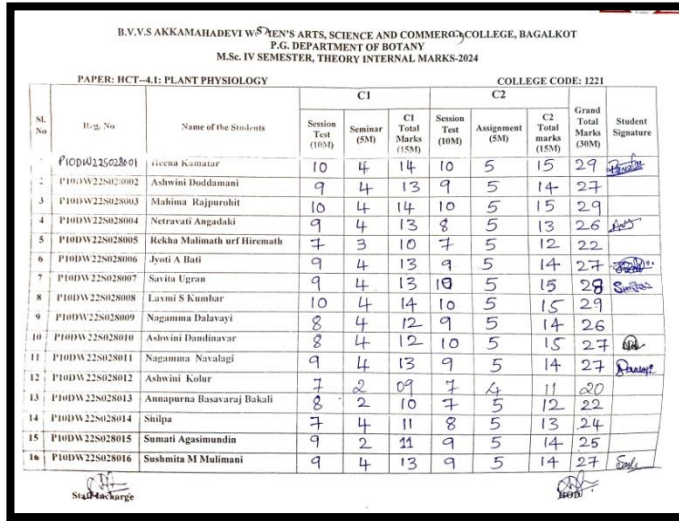 B.V.V.S AKKAMAHADEVI WOMEN'S ARTS, SCIENCE AND COMMERCE COLLEGE, BAGALKOT
P.G. DEPARTMENT OF BOTANY
M.Sc. IV SEMESTER, THEORY INTERNAL MARKS-2024
PAPER: HCT-4.1: PLANT PHYSIOLOGY COLLEGE CODE: 1221
C1 C2
Sl. No Reg. No Name of the Students Session Test (10M) Seminar (5M) C1 Total Marks (15M) Session Test (10M) Assignment (5M) C2 Total marks (15M) Grand Total Marks (30M) Student Signature
P10DW22S028001 Heena Kamatar 10 4 14 10 5 15 29
2 P10DW22S028002 Ashwini Doddamani 9 4 13 9 5 14 27
3 P10DW22S028003 Mahima Rajpurohit 10 4 14 10 5 15 29
4 P10DW22S028004 Netravati Angadaki 9 4 13 8 5 13 26
5 P10DW22S028005 Rekha Malimath urf Hiremath 7 3 10 7 5 12 22
6 P10DW22S028006 Jyoti A Bati 9 4 13 9 5 14 27
7 P10DW22S028007 Savita Ugran 9 4 13 10 5 15 28
8 P10DW22S028008 Laxmi S Kumbar 10 4 14 10 5 15 29
9 P10DW22S028009 Nagamma Dalavayi 8 4 12 9 5 14 26
10 P10DW22S028010 Ashwini Dandinavar 8 4 12 10 5 15 27
11 P10DW22S028011 Nagamma Navalagi 9 4 13 9 5 14 27
12 P10DW22S028012 Ashwini Kolur 7 2 09 7 4 11 20
13 P10DW22S028013 Annapurna Basavaraj Bakali 8 2 10 7 5 12 22
14 P10DW22S028014 Shilpa 7 4 11 8 5 13 24
15 P10DW22S028015 Sumati Agasimundin 9 2 11 9 5 14 25
16 P10DW22S028016 Sushmita M Mulimani 9 4 13 9 5 14 27
Staff Incharge HOD